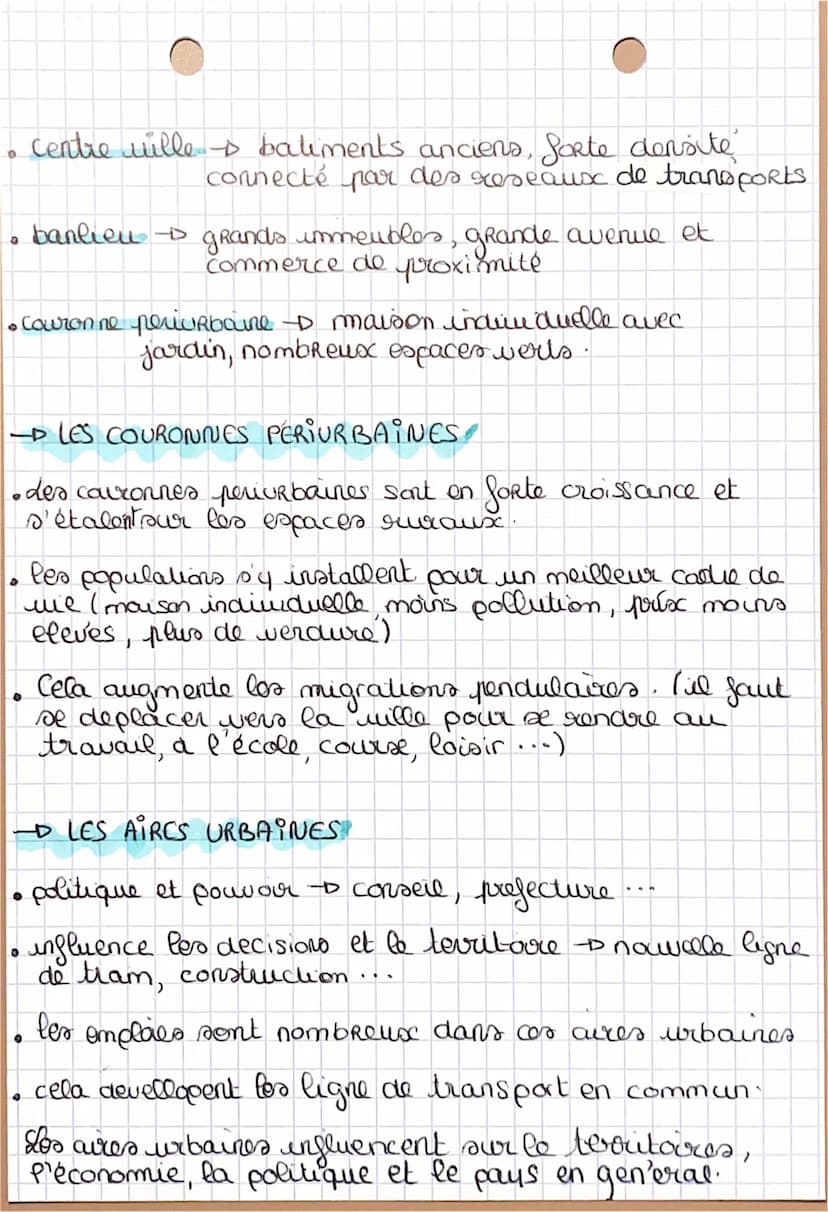 • Centre ville → batiments anciens, forte densité,
connecté par des reseaux de transports
• banlieu → grands immeubles, grande avenue et
commerce de proximité
• couronne periurbaine → maison individuelle avec
jardin, nombreux espaces verts.
→ LES COURONNES PÉRIURBAINES
• des couronnes periurbaines sont en forte croissance et
s'étalent sur les espaces ruraux.
• les populations s'y installent pour un meilleur cadre de
vie (maison individuelle, moins pollution, prix moins
eleves, plus de verdure)
• Cela augmente les migrations pendulaires. (il faut
se deplacer vers la ville pour se rendre au
travail, a l'école, course, loisir ...)
→ LES AIRES URBAINES
• politique et pouvoir → conseil, prefecture ...
• influence les decisions et le territoire → nouvelle ligne
de tram, construction ...
• les emploies sont nombreux dans ces aires urbaines
• cela devellopent les ligne de transport en commun.
Les aires urbaines influencent sur le territoires,
l'économie, la politique et le pays en géneral.